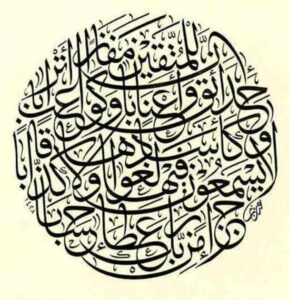 إِنَّ لِلْمُتَّقِينَ مَفَازًا
حَدَائِقَ وَأَعْنَابًا وَكَوَاعِبَ أَتْرَابًا
وَكَأْسًا دِهَاقًا
لَا يَسْمَعُونَ فِيهَا لَغْوًا وَلَا كِذَّابًا
جَزَاءً مِنْ رَبِّكَ عَطَاءً حِسَابًا